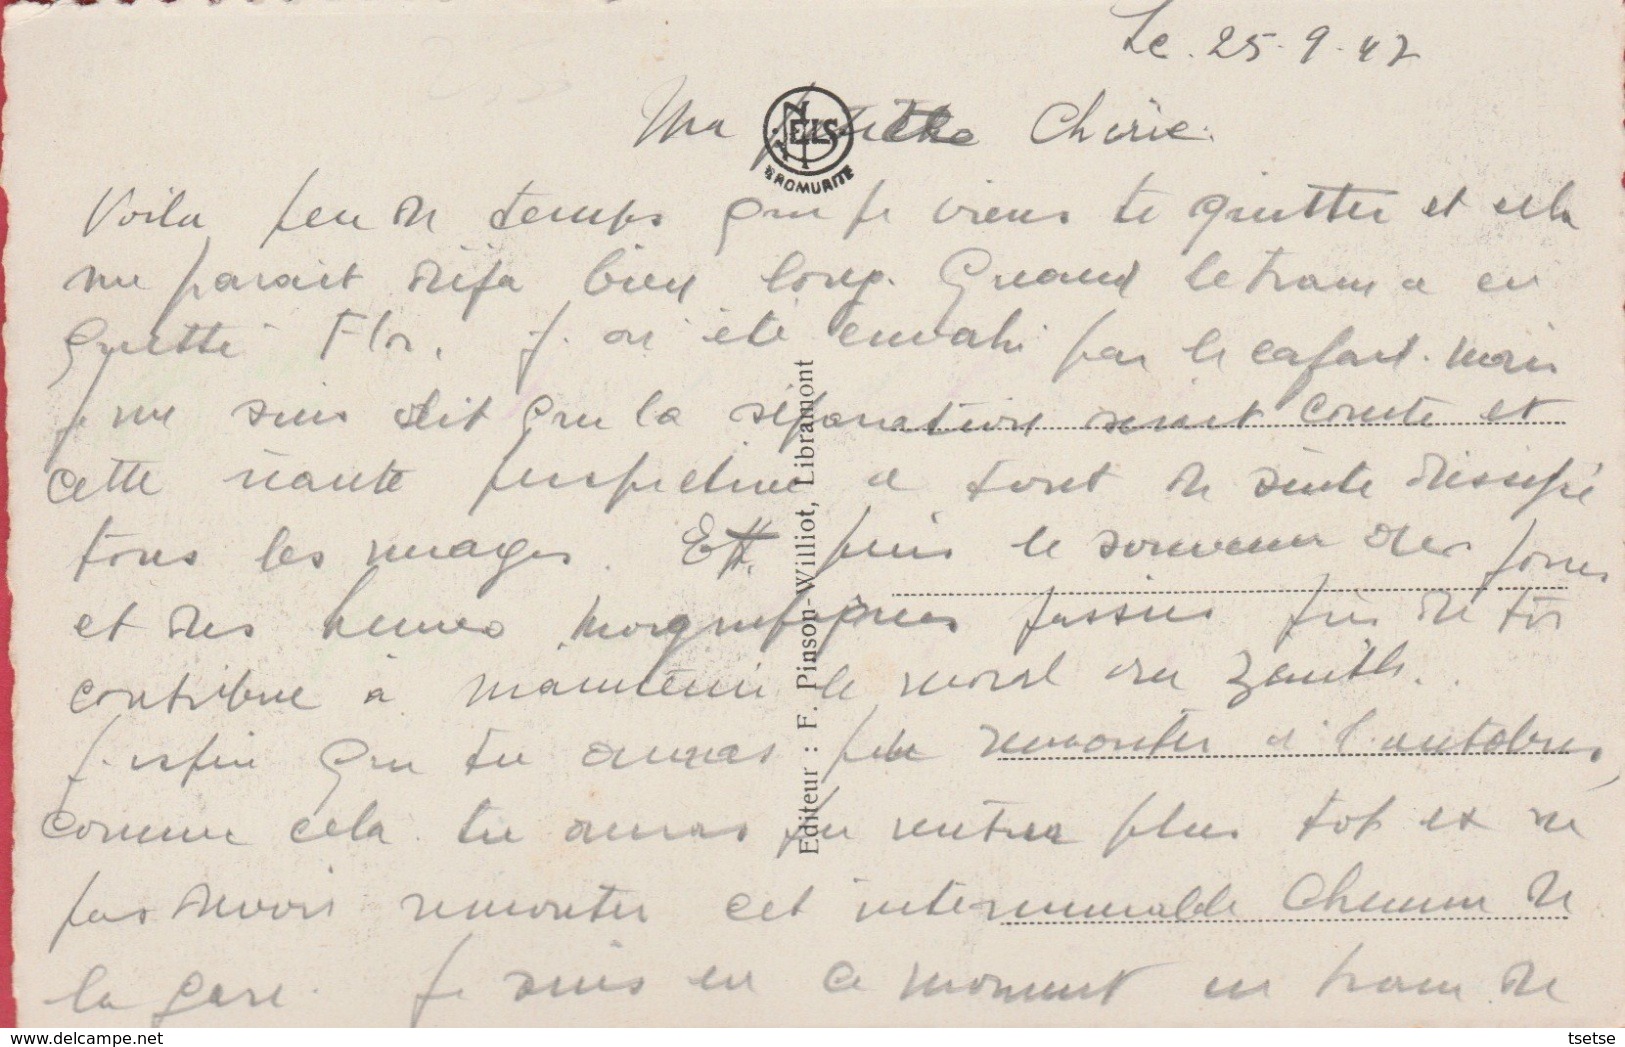 Le. 25-9-47
Ma petite Chérie.
NELS
BROMURITE
Voila peu de temps que je viens te quitter et cela
me parait déja bien long. Quand le tram a eu
quitté Flo, j'ai été envahi par le cafard. mais
je me suis dit que la séparation serait courte et
cette riante perspective a tout de suite dissipé
tous les nuages. Et puis le souvenir des jours
et des heures magnifiques passées près de toi
contribue à maintenir le moral au zénith..
J'espère que tu auras pu remonter à l'autobus,
comme cela tu auras pu rentrer plus tot et ne
pas devoir remonter cet interminable Chemin de
la gare. Je suis en ce moment un tram de
Editeur : F. Pinson-Williot, Libramont
www.delcampe.net
tsetse